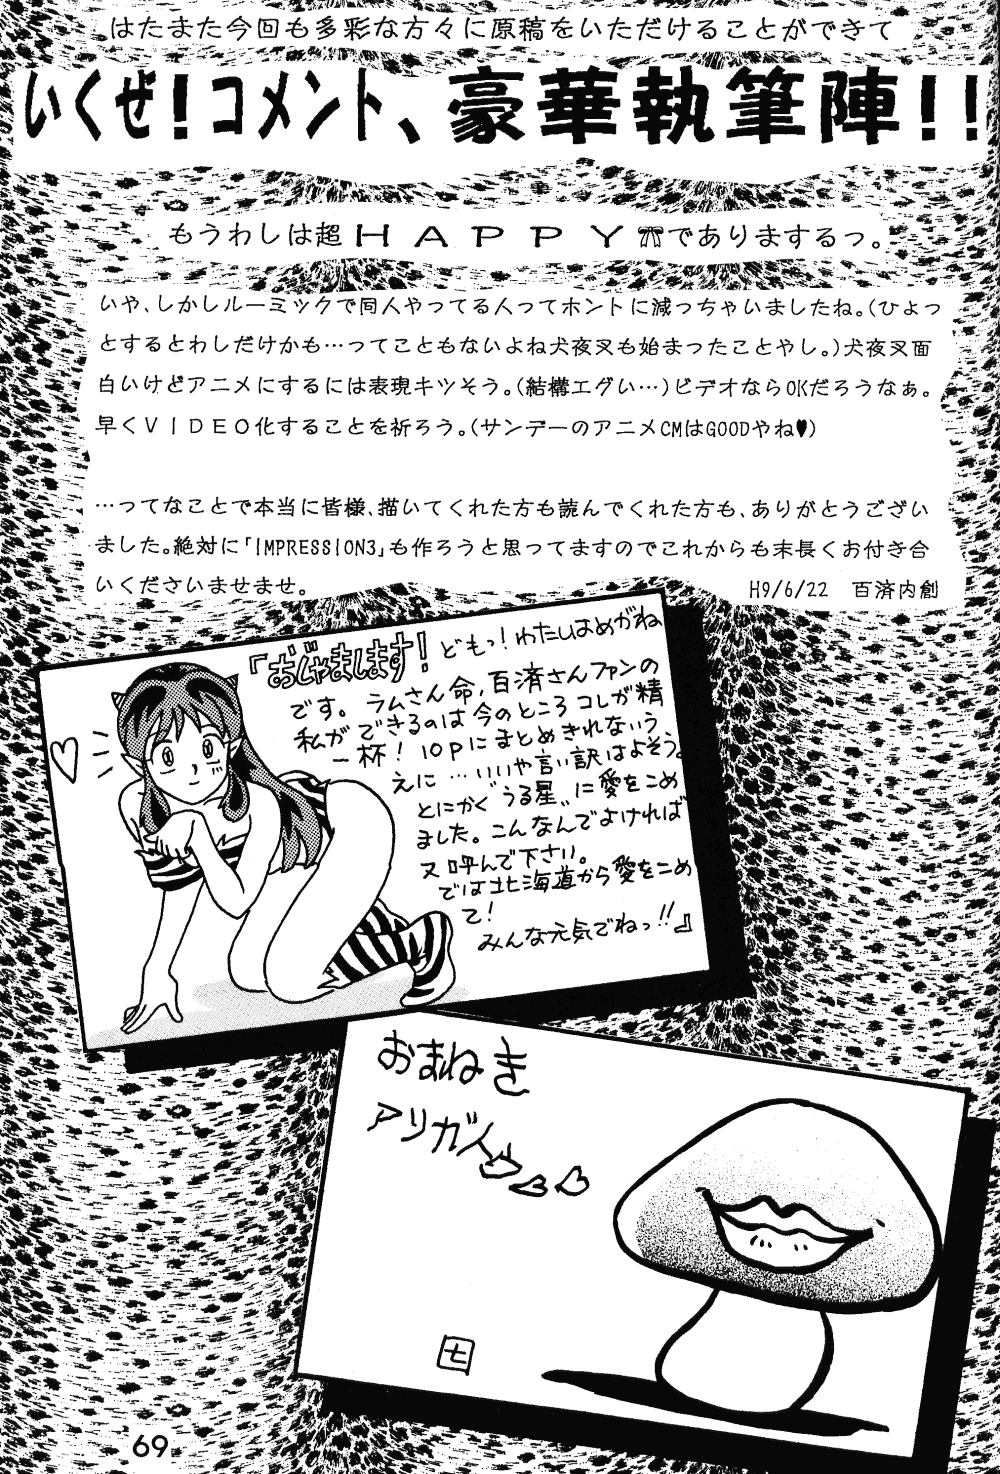 はたまた今回も多彩な方々に原稿をいただけることができて
いくぜ!コメント、豪華執筆陣!!
もうわしは超HAPPYでありまするっ。
いや、しかしルーミックで同人やってる人ってホントに減っちゃいましたね。(ひょっ
とするとわしだけかも…ってこともないよね犬夜叉も始まったことやし。)犬夜叉面
白いけどアニメにするには表現キツそう。(結構エグい…)ビデオならOKだろうなぁ。
早くVIDEO化することを祈ろう。(サンデーのアニメCMはGOODやね♥)
…ってなことで本当に皆様、描いてくれた方も読んでくれた方も、ありがとうござい
ました。絶対に「IMPRESSION3」も作ろうと思ってますのでこれからも末長くお付き合
いくださいませませ。
H9/6/22 百済内創
「おじゃまします! どもっ!わたしはめがね
です。ラムさん命、百済さんファンの
私ができるのは今のところコレが精
一杯!10Pにまとめきれないう
えに…いいや言い訳はよそう。
とにかく"うる星"に愛をこめ
ました。こんなんでよければ
又呼んで下さい。
では北海道から愛をこめ
て!
みんな元気でねっ!!』
おまねき
アリガト♡♡♡
七
69